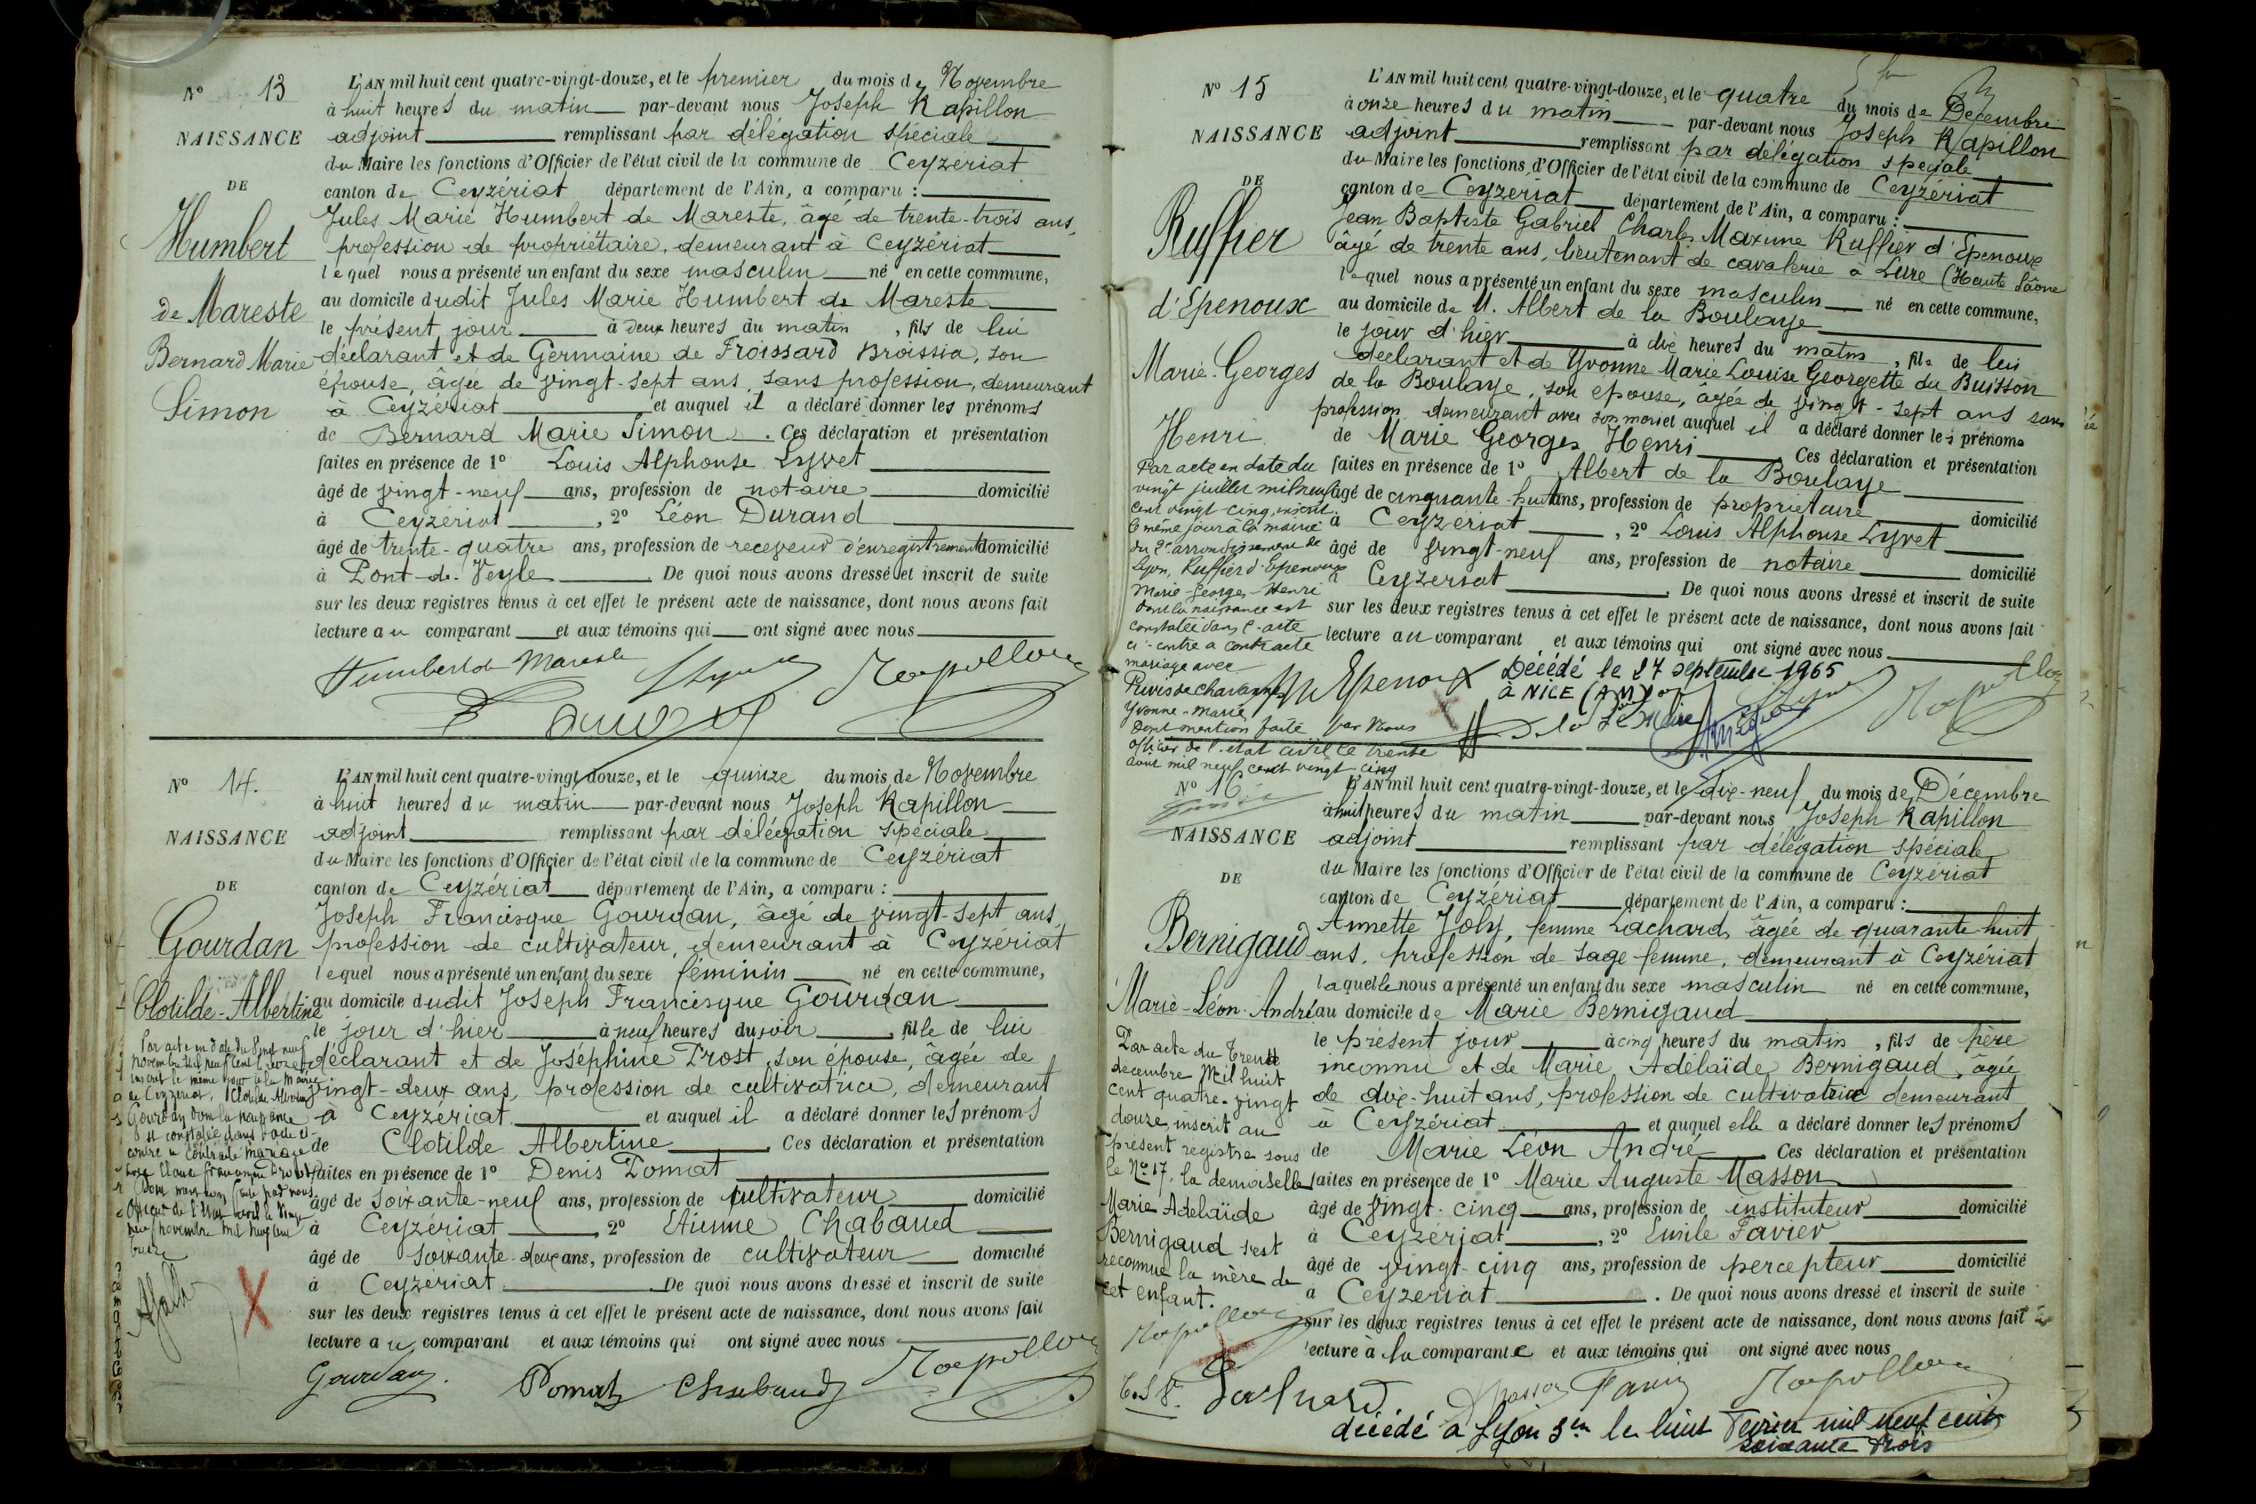 N° 13
NAISSANCE
DE
Humbert
de Mareste
Bernard Marie
Simon
L'AN mil huit cent quatre-vingt-douze, et le premier du mois de Novembre
à huit heures du matin par-devant nous Joseph Rapillon
adjoint remplissant par délégation spéciale
du Maire les fonctions d'Officier de l'état civil de la commune de Ceyzériat
canton de Ceyzériat département de l'Ain, a comparu :
Jules Marie Humbert de Mareste, âgé de trente-trois ans,
profession de propriétaire, demeurant à Ceyzériat
lequel nous a présenté un enfant du sexe masculin né en cette commune,
au domicile dudit Jules Marie Humbert de Mareste
le présent jour à deux heures du matin, fils de lui
déclarant et de Germaine de Froissard Broissia, son
épouse, âgée de vingt-sept ans, sans profession, demeurant
à Ceyzériat et auquel il a déclaré donner les prénoms
de Bernard Marie Simon. Ces déclaration et présentation
faites en présence de 1° Louis Alphonse Lyvet
âgé de vingt-neuf ans, profession de notaire domicilié
à Ceyzériat, 2° Léon Durand
âgé de trente-quatre ans, profession de receveur d'enregistrement domicilié
à Pont-de-Veyle De quoi nous avons dressé et inscrit de suite
sur les deux registres tenus à cet effet le présent acte de naissance, dont nous avons fait
lecture au comparant et aux témoins qui ont signé avec nous
Humbert de Mareste Lyvet Rapillon
Durand
N° 14.
NAISSANCE
DE
Gourdan
Clotilde-Albertine
Par acte en date du vingt neuf
novembre mil neuf cent treize
inscrit le même jour à la Mairie
de Ceyzériat, Clotilde Albertine
Gourdan dont la naissance
est constatée dans l'acte ci-
contre a contracté mariage
avec
dont mention faite par nous
Officier de l'état civil le vingt
neuf novembre mil neuf cent
treize
L'AN mil huit cent quatre-vingt-douze, et le quinze du mois de Novembre
à huit heures du matin par-devant nous Joseph Rapillon
adjoint remplissant par délégation spéciale
du Maire les fonctions d'Officier de l'état civil de la commune de Ceyzériat
canton de Ceyzériat département de l'Ain, a comparu :
Joseph Francisque Gourdan, âgé de vingt-sept ans,
profession de cultivateur, demeurant à Ceyzériat
lequel nous a présenté un enfant du sexe féminin né en cette commune,
au domicile dudit Joseph Francisque Gourdan
le jour d'hier à neuf heures du soir, fille de lui
déclarant et de Joséphine Prost, son épouse, âgée de
vingt-deux ans, profession de cultivatrice, demeurant
à Ceyzériat et auquel il a déclaré donner les prénoms
de Clotilde Albertine Ces déclaration et présentation
faites en présence de 1° Denis Pomat
âgé de soixante-neuf ans, profession de cultivateur domicilié
à Ceyzériat, 2° Etienne Chabaud
âgé de soixante-deux ans, profession de cultivateur domicilié
à Ceyzeriat De quoi nous avons dressé et inscrit de suite
sur les deux registres tenus à cet effet le présent acte de naissance, dont nous avons fait
lecture au comparant et aux témoins qui ont signé avec nous
Gourdan. Pomat Chabaud Rapillon
N° 15
NAISSANCE
DE
Ruffier
d'Epenoux
Marie-Georges
Henri
Par acte en date du
vingt juillet mil neuf
cent vingt cinq, inscrit
le même jour à la mairie
du 2e arrondissement de
Lyon, Ruffier d'Epenoux
Marie-Georges-Henri
dont la naissance est
constatée dans l'acte
ci-contre a contracté
mariage avec
Yvonne-Marie
Dont mention faite par Nous
officier de l'état civil le trente
août mil neuf cent vingt cinq
L'AN mil huit cent quatre-vingt-douze, et le quatre du mois de Décembre
à onze heures du matin par-devant nous Joseph Rapillon
adjoint remplissant par délégation spéciale
du Maire les fonctions d'Officier de l'état civil de la commune de Ceyzériat
canton de Ceyzériat département de l'Ain, a comparu :
Jean Baptiste Gabriel Charles Maxime Ruffier d'Epenoux
âgé de trente ans, lieutenant de cavalerie à Lure (Haute Saône
lequel nous a présenté un enfant du sexe masculin né en cette commune,
au domicile de M. Albert de la Boulaye
le jour d'hier à dix heures du matin, fils de lui
déclarant et de Yvonne Marie Louise Georgette du Buisson
de la Boulaye, son épouse, âgée de vingt-sept ans sans
profession demeurant avec son mari et auquel il a déclaré donner les prénoms
de Marie Georges Henri Ces déclaration et présentation
faites en présence de 1° Albert de la Boulaye
âgé de cinquante-huit ans, profession de propriétaire domicilié
à Ceyzeriat, 2° Louis Alphonse Lyvet
âgé de vingt-neuf ans, profession de notaire domicilié
à Ceyzeriat De quoi nous avons dressé et inscrit de suite
sur les deux registres tenus à cet effet le présent acte de naissance, dont nous avons fait
lecture au comparant et aux témoins qui ont signé avec nous
Décédé le 27 septembre 1965
à NICE (AM)
Le Maire
N° 16
NAISSANCE
DE
Bernigaud
Marie-Léon-André
Par acte du trente
décembre Mil huit
cent quatre-vingt
douze, inscrit au
présent registre sous
le N° 17, la demoiselle
Marie Adelaïde
Bernigaud s'est
reconnue la mère de
cet enfant.
Rapillon
L'AN mil huit cent quatre-vingt-douze, et le dix-neuf du mois de Décembre
à huit heures du matin par-devant nous Joseph Rapillon
adjoint remplissant par délégation spéciale
du Maire les fonctions d'Officier de l'état civil de la commune de Ceyzériat
canton de Ceyzériat département de l'Ain, a comparu :
Annette Joly, femme Lachard, âgée de quarante huit
ans, profession de sage femme, demeurant à Ceyzériat
laquelle nous a présenté un enfant du sexe masculin né en cette commune,
au domicile de Marie Bernigaud
le présent jour à cinq heures du matin, fils de père
inconnu et de Marie Adélaïde Bernigaud, âgée
de dix-huit ans, profession de cultivatrice demeurant
à Ceyzériat et auquel elle a déclaré donner les prénoms
de Marie Léon André Ces déclaration et présentation
faites en présence de 1° Marie Auguste Masson
âgé de vingt-cinq ans, profession de instituteur domicilié
à Ceyzériat, 2° Emile Favier
âgé de vingt-cinq ans, profession de percepteur domicilié
à Ceyzeriat. De quoi nous avons dressé et inscrit de suite
sur les deux registres tenus à cet effet le présent acte de naissance, dont nous avons fait
lecture à la comparante et aux témoins qui ont signé avec nous
Lachard Masson Favier Rapillon
décédé à Lyon 3e le huit Février mil neuf cent
soixante trois